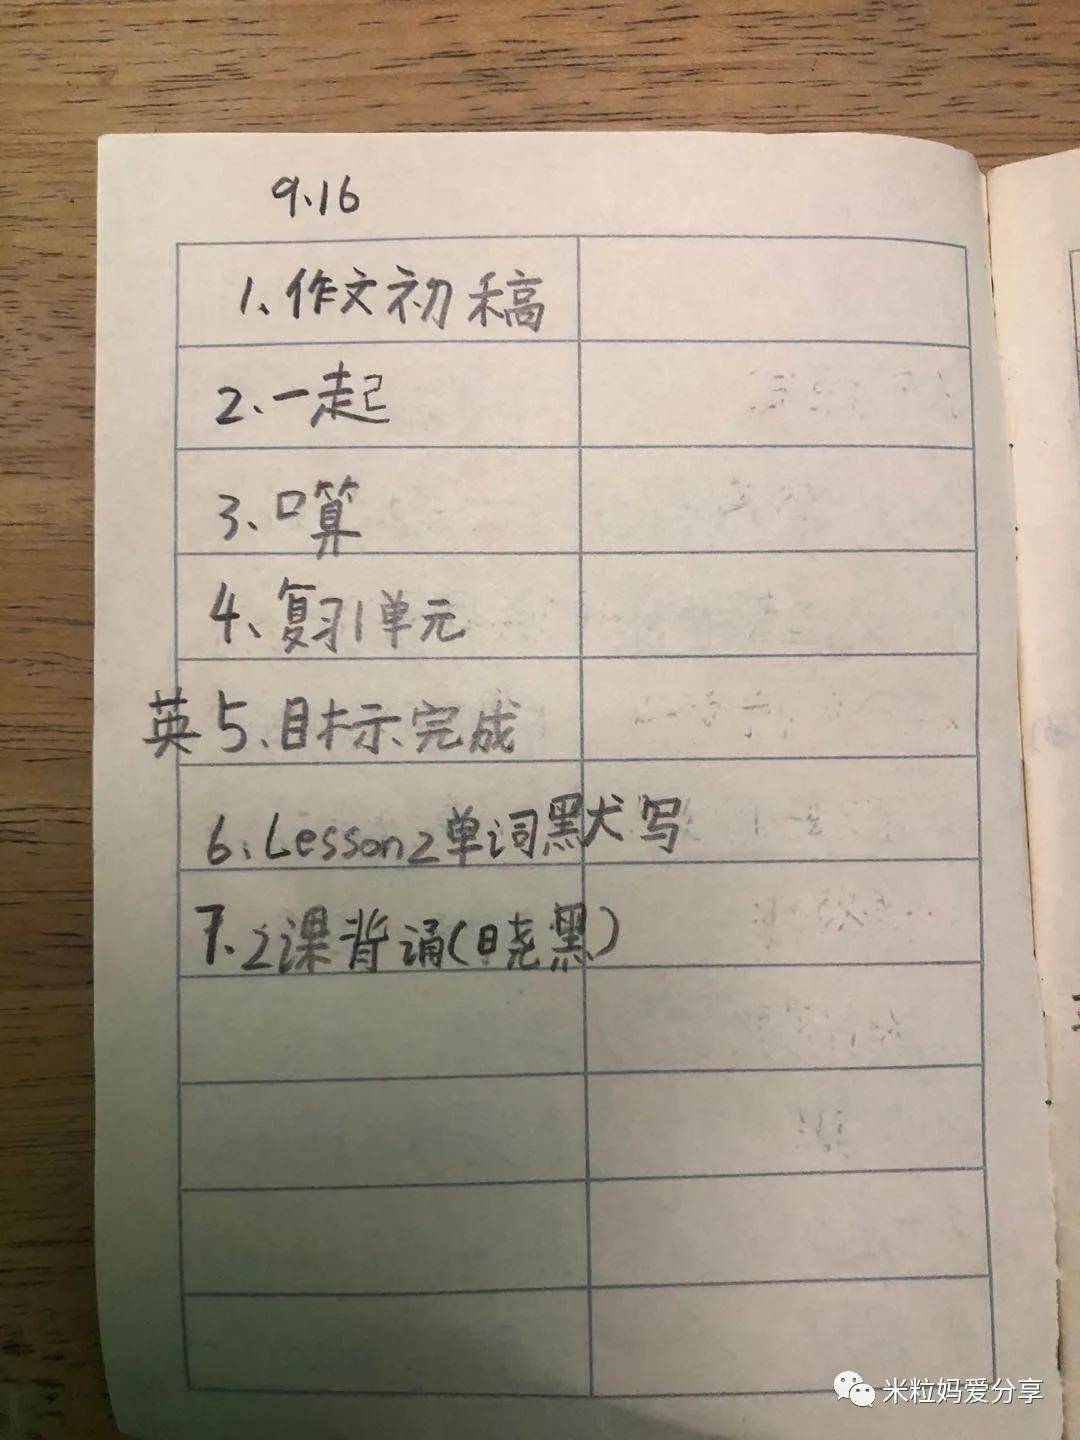 9.16
1、作文初稿
2、一起
3、口算
4、复习1单元
英5、目标示完成
6、Lesson2单词默写
7、2课背诵(晓黑)
米粒妈爱分享